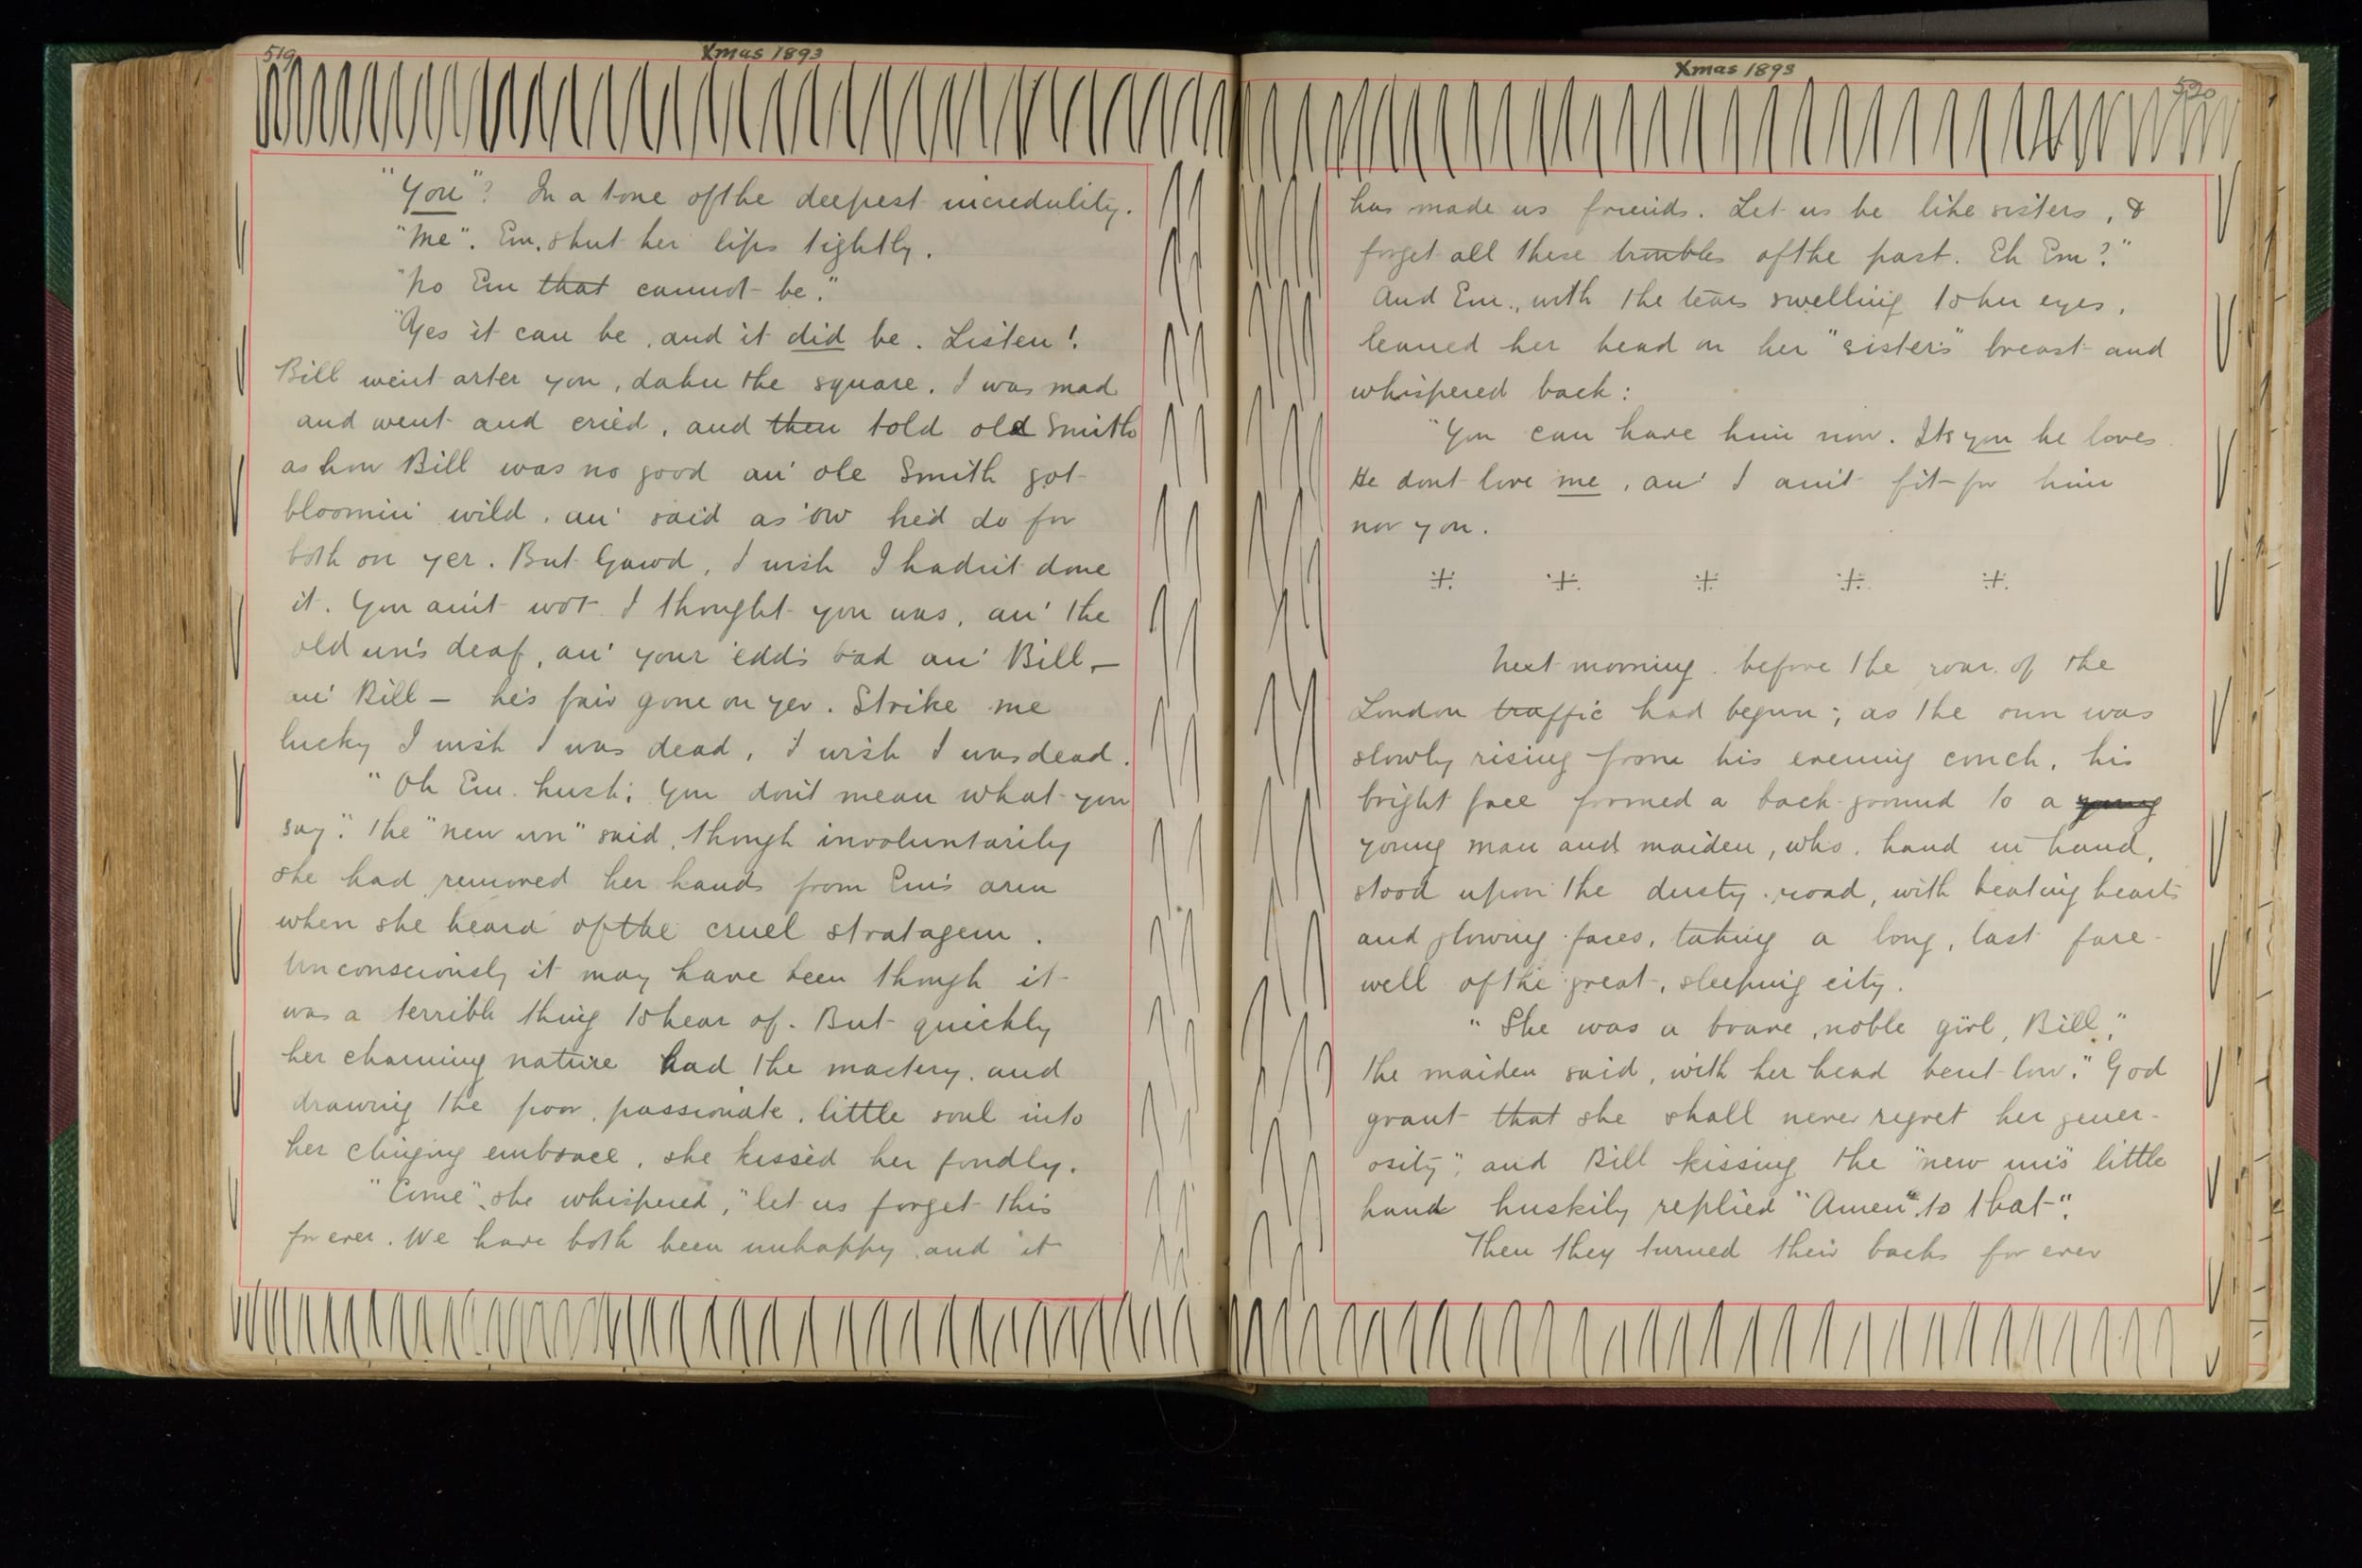 519
Xmas 1893
"You"? In a tone of the deepest incredulity.
"Me". Em. shut her lips tightly.
"No Em that cannot be."
"Yes it can be, and it did be. Listen!
Bill went arter you, dahn the square. I was mad
and went and cried, and then told old Smith
as how Bill was no good an' ole Smith got
bloomin' wild, an' said as 'ow he'd do for
both on yer. But Gawd, I wish I hadn't done
it. You ain't wot I thought you was, an' the
old un's deaf, an' your 'edd's bad an' Bill, —
an' Bill — he's fair gone on yer. Strike me
lucky I wish I was dead, I wish I was dead.
"Oh Em. hush; You don't mean what you
say". The "new un" said, though involuntarily
she had removed her hands from Em's arm
when she heard of the cruel stratagem.
Unconsciously it may have been though it
was a terrible thing to hear of. But quickly
her charming nature had the mastery, and
drawing the poor, passionate, little soul into
her clinging embrace, she kissed her fondly.
"Come", she whispered, "let us forget this
for ever. We have both been unhappy, and it
Xmas 1893
520
has made us friends. Let us be like sisters, &
forget all these troubles of the past. Eh Em?"
And Em., with the tears swelling to her eyes,
leaned her head on her "sister's" breast and
whispered back:
"You can have him now. Its you he loves
He dont love me, an' I ain't fit for him
nor you.
Next morning, before the roar of the
London traffic had begun; as the sun was
slowly rising from his evening couch, his
bright face formed a back-ground to a young
young man and maiden, who, hand in hand,
stood upon the dusty road, with beating hearts
and glowing faces, taking a long, last fare-
well of the great, sleeping city.
"She was a brave, noble girl, Bill,"
the maiden said, with her head bent low. "God
grant that she shall never regret her gener-
osity", and Bill kissing the "new un's" little
hand huskily replied "Amen" to that".
Then they turned their backs for ever